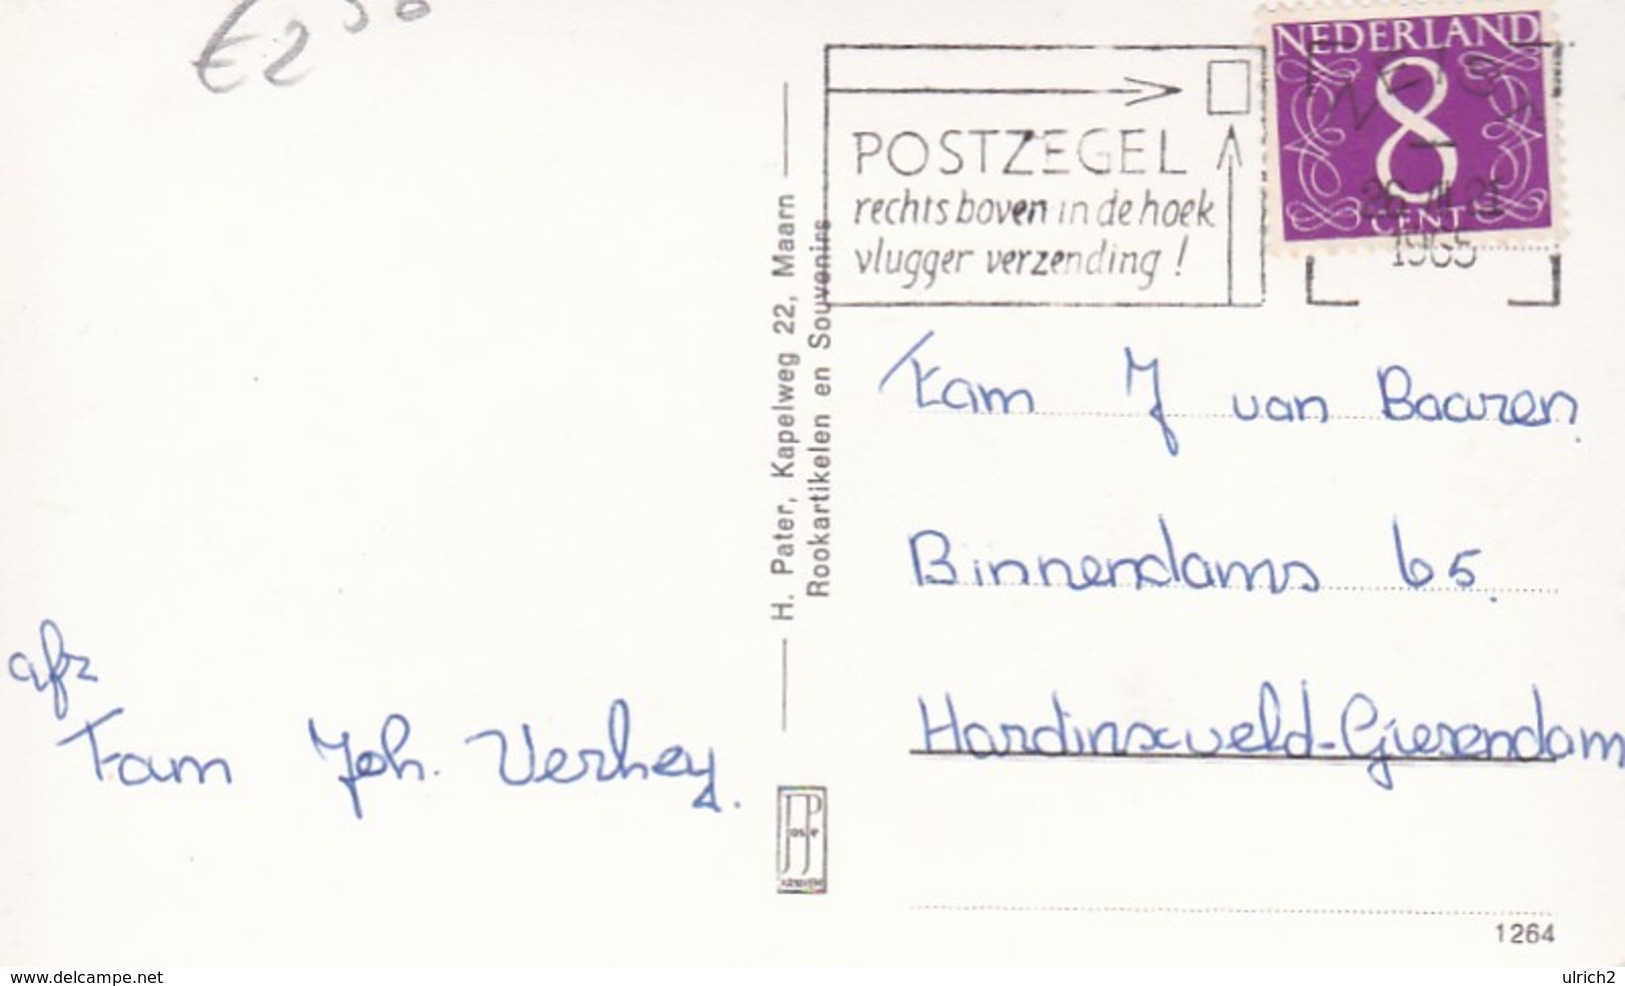 €2 50
NEDERLAND
8
CENT
ZEIST
1965
POSTZEGEL
rechts boven in de hoek
vlugger verzending!
H. Pater, Kapelweg 22, Maarn
Rookartikelen en Souvenirs
Fam J van Baaren.
Binnendams 65.
Hardinxveld-Giesendam
afz
Fam Joh. Verhey.
1264
www.delcampe.net
ulrich2